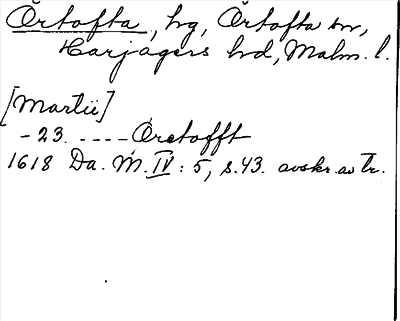 Örtofta, hg, Örtofta sn,
Harjagers hd, Malm. l.
[Martii]
- 23. ---- Öretofft
1618 Da. M. IV : 5, s. 43. avskr. av Tr.